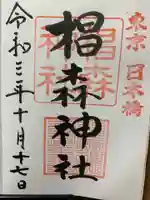 東京 日本橋
椙森神社
令和三年十月十七日
椙森
神社